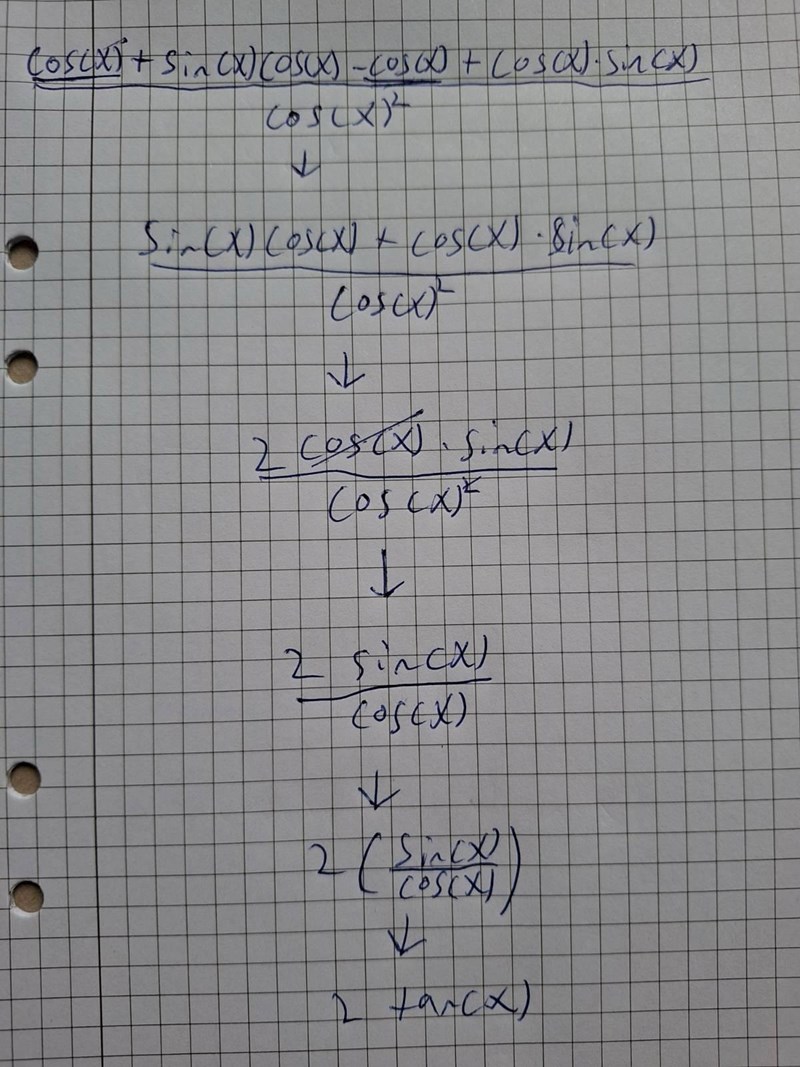 cos(x) + sin(x)cos(x) - cos(x) + cos(x)·sin(x)
cos(x)²
↓
sin(x)cos(x) + cos(x)·sin(x)
cos(x)²
↓
2 cos(x)·sin(x)
cos(x)²
↓
2 sin(x)
cos(x)
↓
2 (sin(x)
cos(x))
↓
2 tan(x)